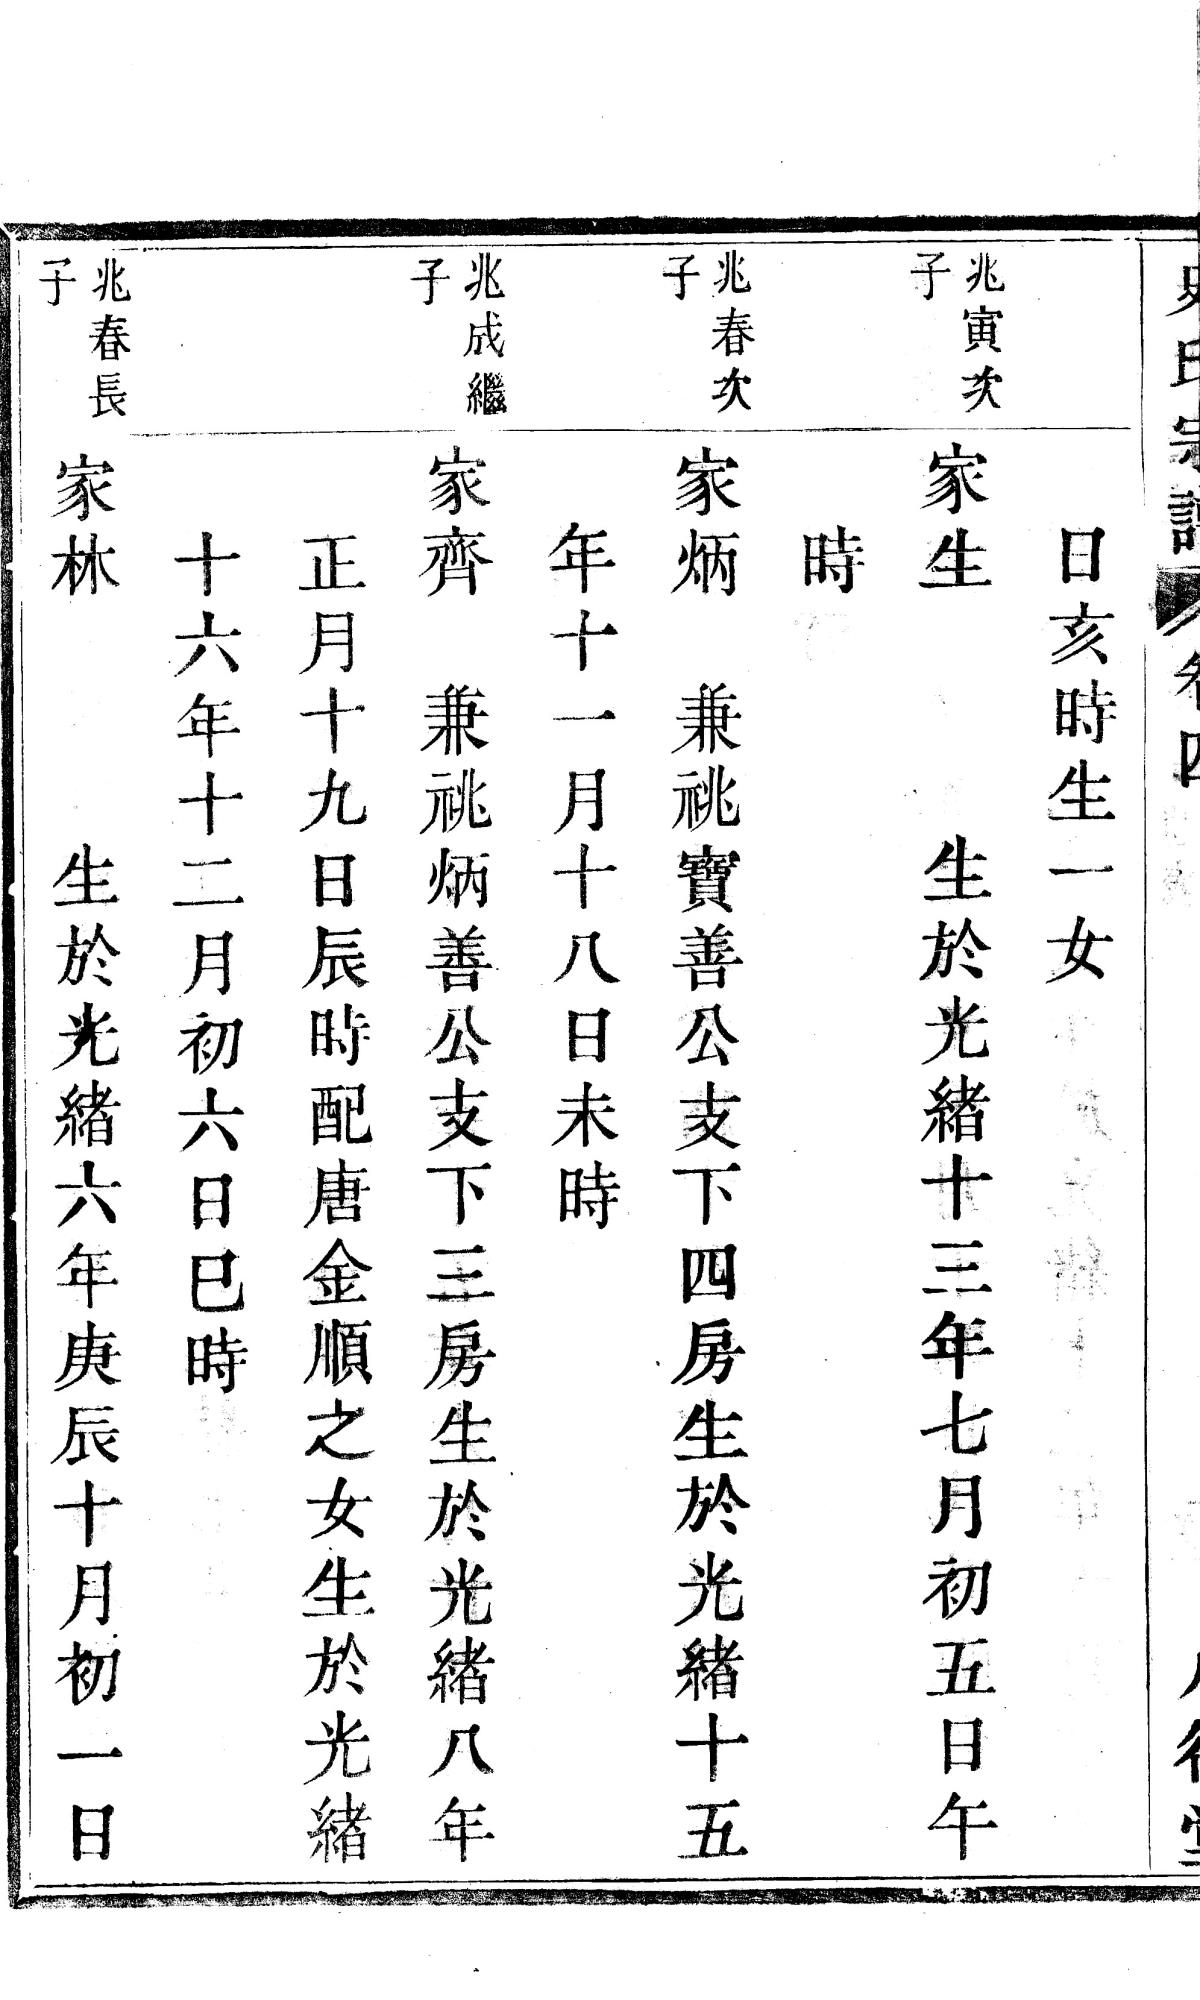 氏宗譜 卷四
日亥時生一女
兆寅次子
家生 生於光緒十三年七月初五日午
時
兆春次子
家炳 兼祧寶善公支下四房生於光緒十五
年十一月十八日未時
兆成繼子
家齊 兼祧炳善公支下三房生於光緒八年
正月十九日辰時配唐金順之女生於光緒
十六年十二月初六日巳時
兆春長子
家林 生於光緒六年庚辰十月初一日